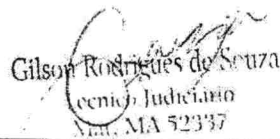 Gilson Rodrigues de Souza
Tecnico Judiciario
Mat. MA 52337